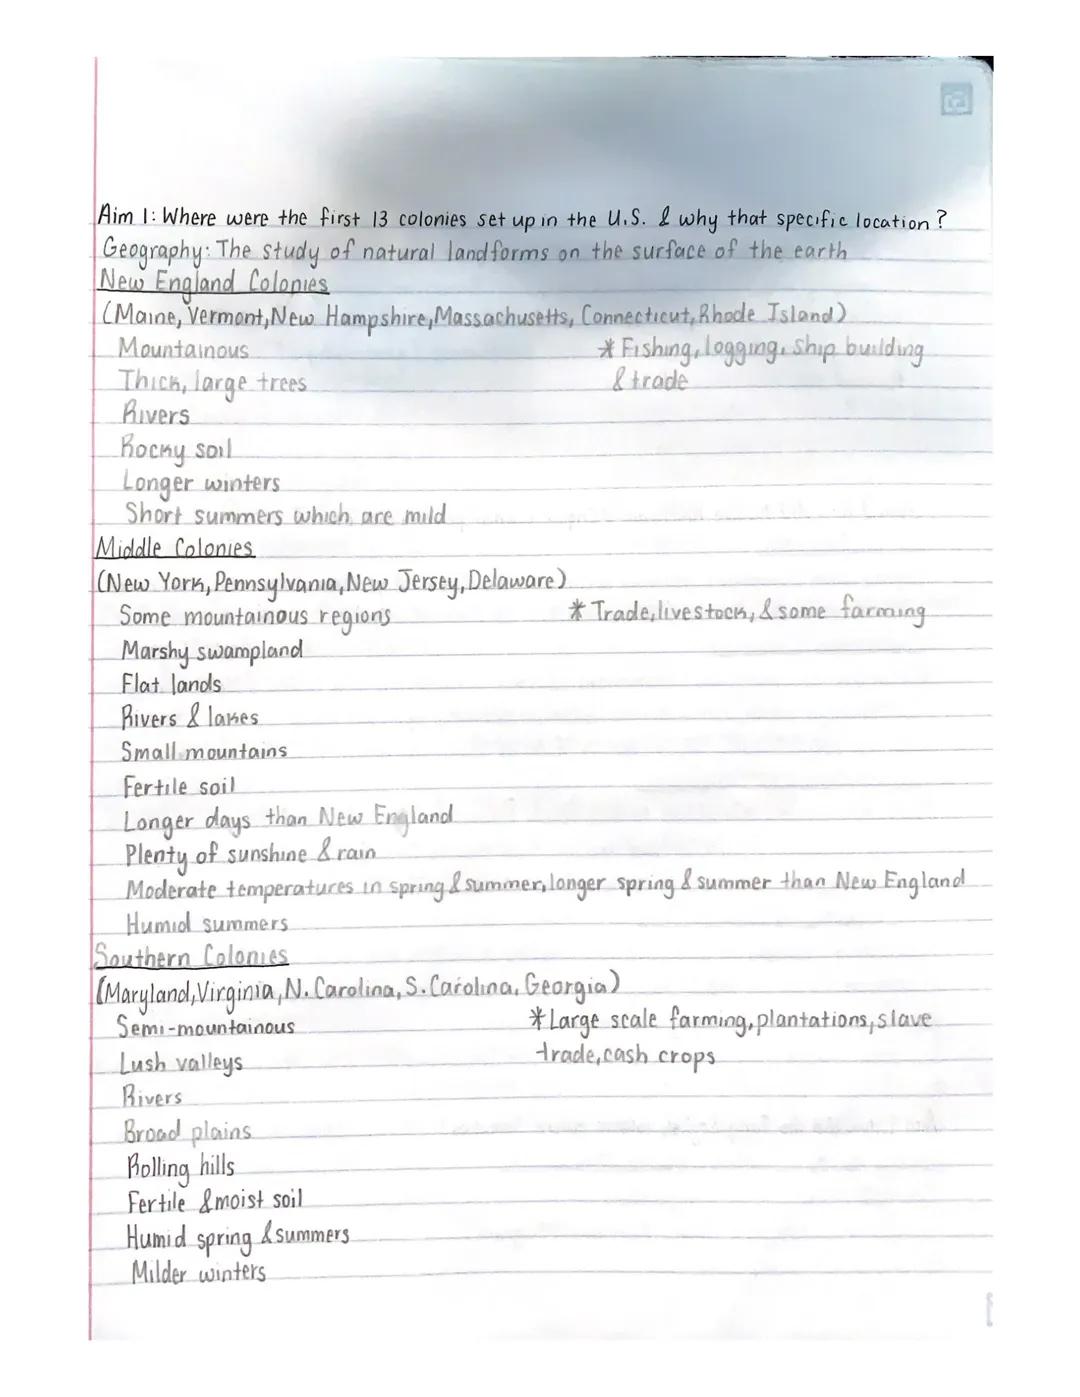 Aim 1: Where were the first 13 colonies set up in the U.S. & why that specific location?
Geography: The study of natural landforms on the surface of the earth
New England Colonies
(Maine, Vermont, New Hampshire, Massachusetts, Connecticut, Rhode Island)
Mountainous * Fishing, logging, ship building
Thick, large trees & trade
Rivers
Rocky soil
Longer winters
Short summers which are mild
Middle Colonies
(New York, Pennsylvania, New Jersey, Delaware)
Some mountainous regions * Trade, livestock, & some farming
Marshy swampland
Flat lands
Rivers & lakes
Small mountains
Fertile soil
Longer days than New England
Plenty of sunshine & rain
Moderate temperatures in spring & summer, longer spring & summer than New England
Humid summers
Southern Colonies
(Maryland, Virginia, N. Carolina, S. Carolina, Georgia)
Semi-mountainous * Large scale farming, plantations, slave
Lush valleys trade, cash crops
Rivers
Broad plains
Rolling hills
Fertile & moist soil
Humid spring & summers
Milder winters